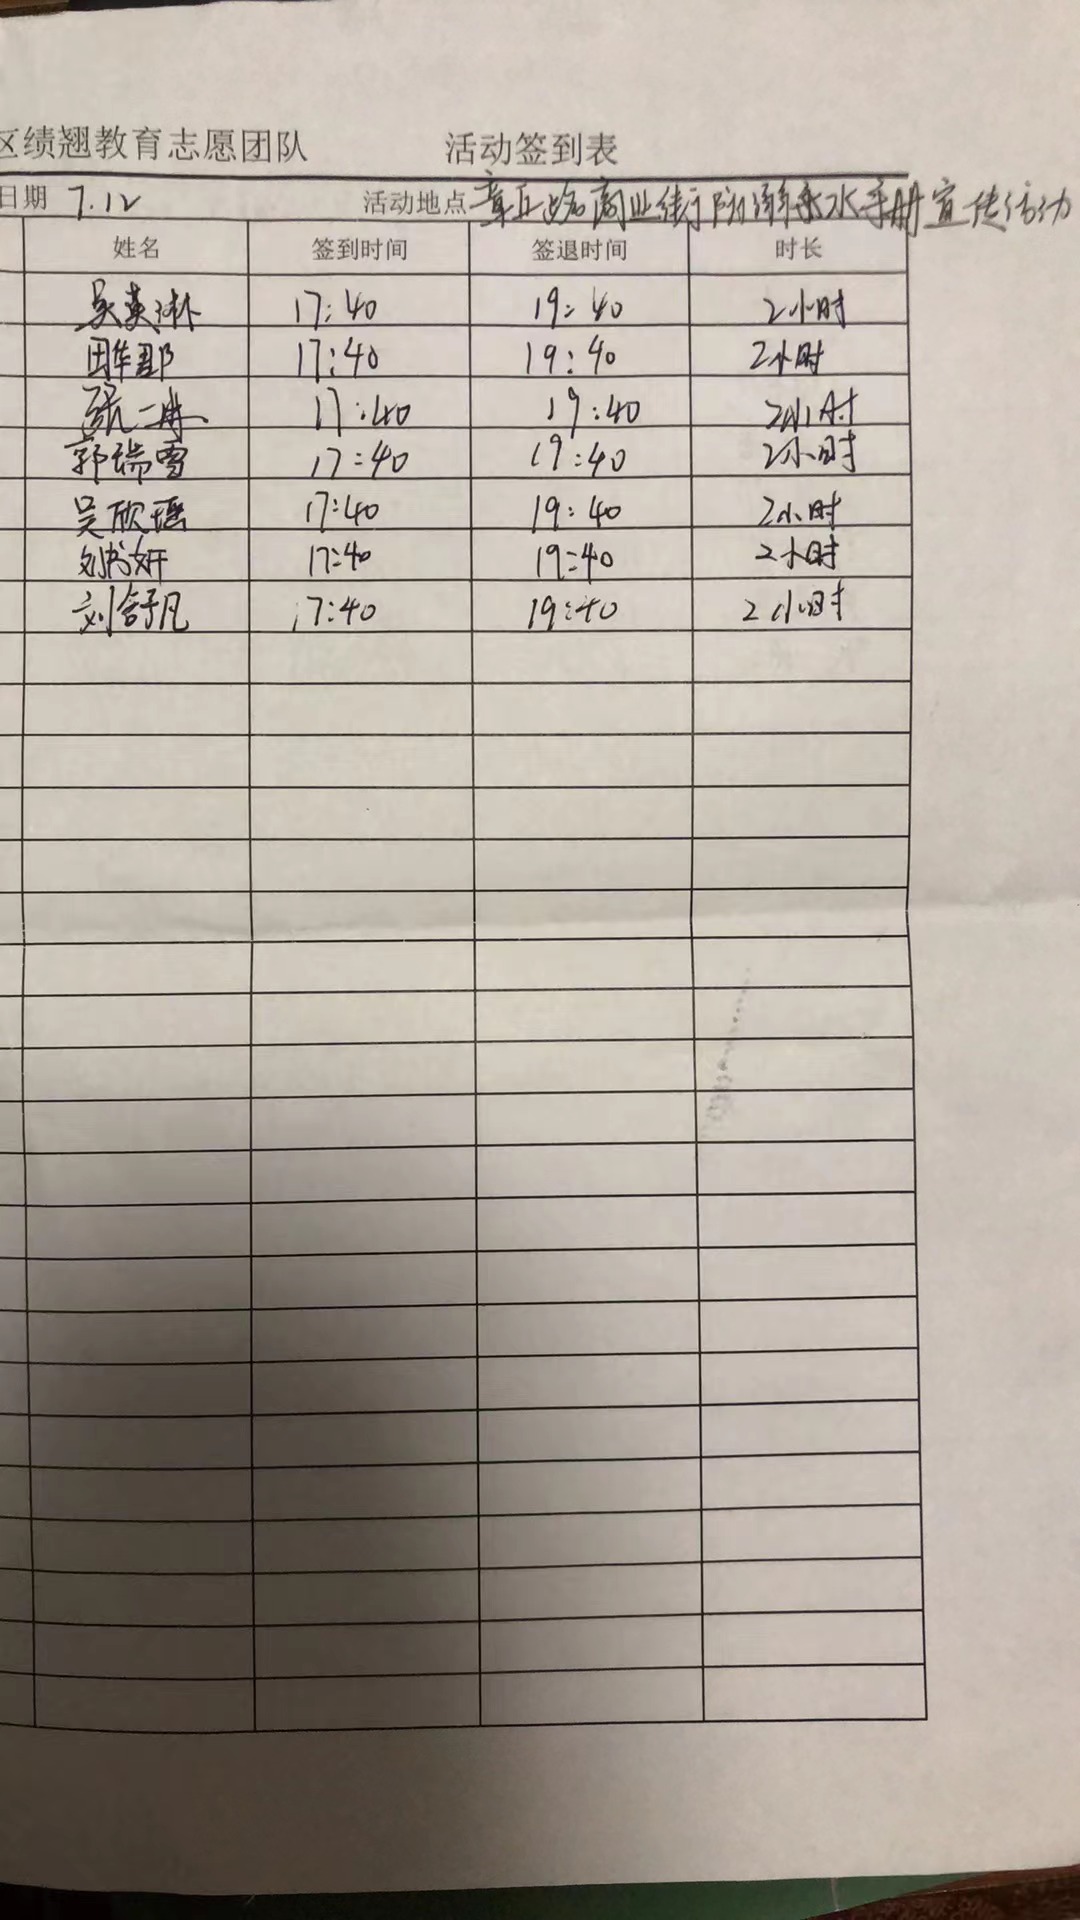 区绩翘教育志愿团队 活动签到表
日期 7.12 活动地点 章丘路商业街防溺水手册宣传活动
姓名 签到时间 签退时间 时长
吴英淋 17:40 19:40 2小时
田华郡 17:40 19:40 2小时
张一冉 17:40 19:40 2小时
郭瑞雪 17:40 19:40 2小时
吴欣瑶 17:40 19:40 2小时
刘书妍 17:40 19:40 2小时
刘舒凡 17:40 19:40 2小时